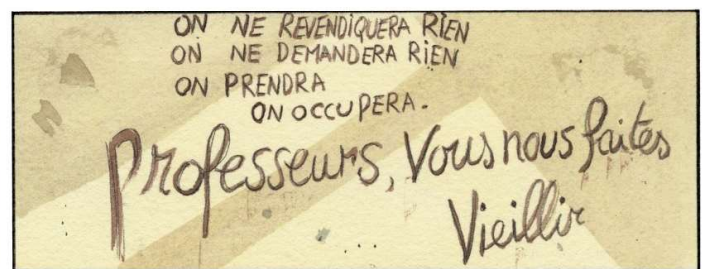 ON NE REVENDIQUERA RIEN
ON NE DEMANDERA RIEN
ON PRENDRA
ON OCCUPERA.
Professeurs, Vous nous faites
Vieillir